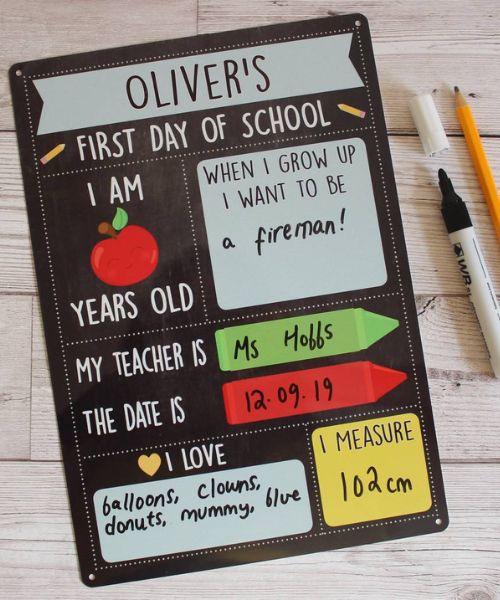 OLIVER'S
FIRST DAY OF SCHOOL
I AM
YEARS OLD
WHEN I GROW UP
I WANT TO BE
a fireman!
MY TEACHER IS
Ms Hobbs
THE DATE IS
12.09.19
I LOVE
balloons, clowns,
donuts, mummy, blue
I MEASURE
102 cm